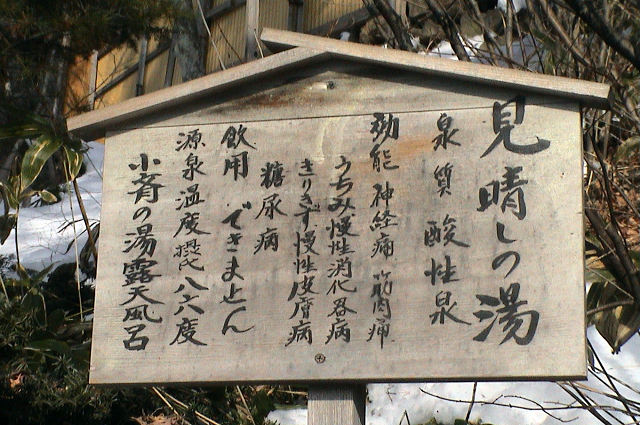 見晴しの湯
泉質 酸性泉
効能 神経痛 筋肉痛
うちみ慢性消化器病
きりきず慢性皮膚病
糖尿病
飲用 できません
源泉温度摂氏八六度
小斉の湯露天風呂